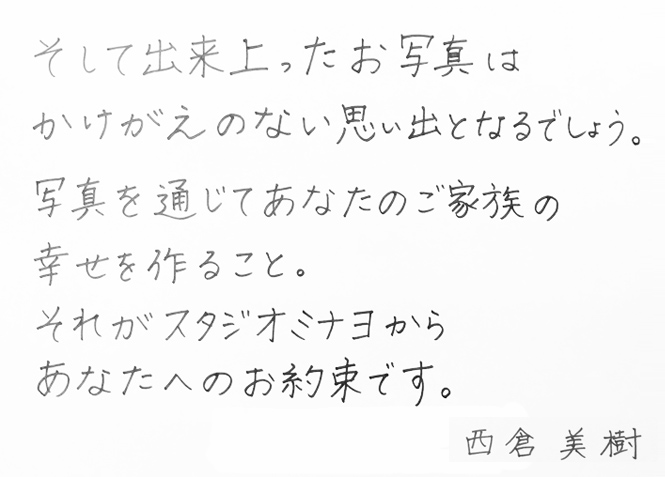 そして出来上ったお写真は
かけがえのない思い出となるでしょう。
写真を通じてあなたのご家族の
幸せを作ること。
それがスタジオミナヨから
あなたへのお約束です。
西倉 美樹